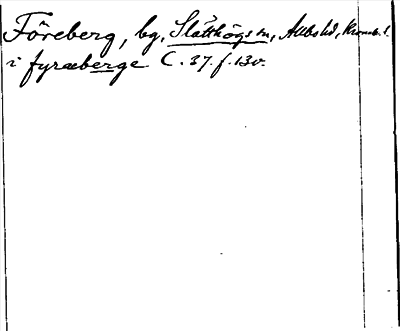 Föreberg, bg, Slätthögs sn, Allbo hd, Kronob. l.
i fyræberge C. 37. f. 130.